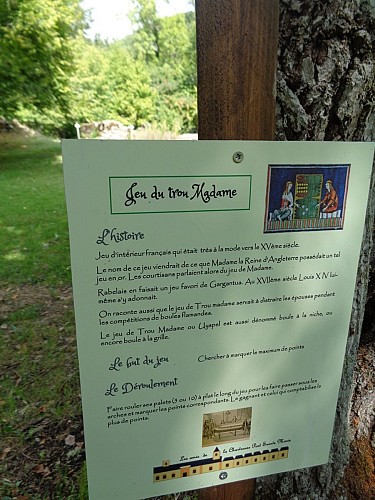 Jeu du trou Madame
L'histoire
Jeu d'intérieur français qui était très à la mode vers le XVème siècle.
Le nom de ce jeu viendrait de ce que Madame la Reine d'Angleterre possédait un tel
jeu en or. Les courtisans parlaient alors du jeu de Madame.
Rabelais en faisait un jeu favori de Gargantua. Au XVIIème siècle Louis XIV lui-
même s'y adonnait.
On raconte aussi que le jeu de Trou madame servait à distraire les épouses pendant
les compétitions de boules flamandes.
Le jeu de Trou Madame ou est aussi dénommé boule à la niche, ou
encore boule à la grille.
Le but du jeu
Chercher à marquer le maximum de points
Le Déroulement
Faire rouler ses palets (5 ou 10) à plat le long du jeu pour les faire passer sous les
arches et marquer les points correspondants. Le gagnant est celui qui comptabilise le
plus de points.
Les amis de la Chartreuse Port Sainte Marie